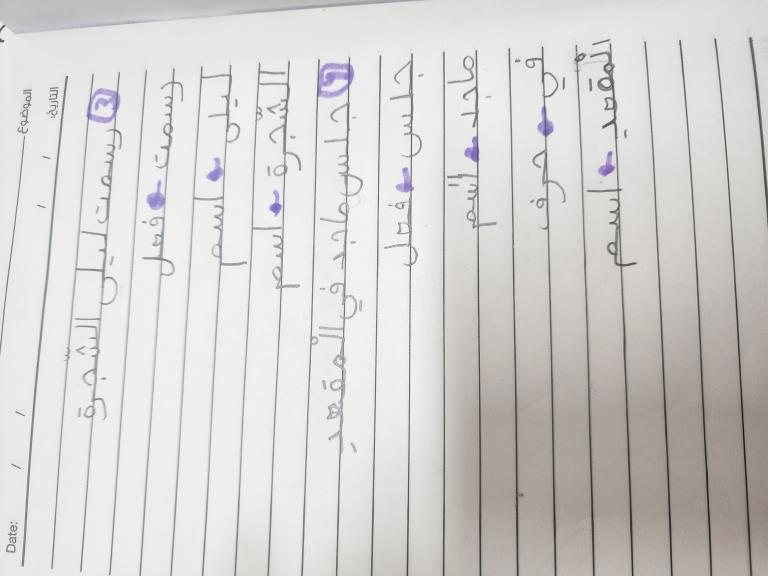 Date: / / الموضوع
التاريخ: / /
٣ رسمت ليلى الشجرة
رسمت ← فعل
ليلى ← اسم
الشجرة ← اسم
جلس ماجد في المقعد
جلس ← فعل
ماجد ← اسم
في ← حرف
المقعد ← اسم